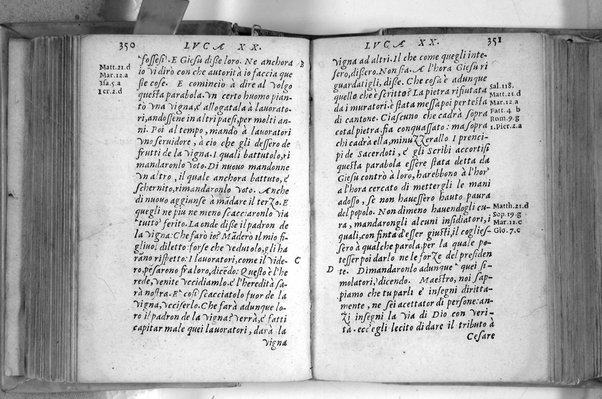 350 LVCA XX.
Matt.21.d
Mar.12.a
Isa.5.a
Ier.2.d
fossesi. E Giesù disse loro. Ne anchora
io vi dirò con che autorità io faccia que
ste cose. E comincio a dire al volgo
questa parabola. vn certo huomo pian-
tò vna vigna, e allogatala à lauorato-
ri, andossene in altri paesi, per molti an-
ni. Poi al tempo, mandò à lauoratori
vno seruidore, à cio che gli dessero de
frutti de la vigna. I quali battutolo, ri
mandaronlo voto. Di nuouo mandonne
vn altro, il quale anchora battuto, e
schernito, rimandaronlo voto. Anche
di nuouo aggiunse a mãdare il terzo. E
quegli ne piu ne meno scacciaronlo via
tutto ferito. La onde disse il padron de
la vigna. Che farò io? Mãderò il mio fi-
gliuol diletto forse che vedutolo, gli ha
rano rispetto. I lauoratori, come il vide-
ro, pesarono fra loro, dicẽdo. Questo è l'he
rede, venite vccidiamlo, e l'heredità sa
rà nostra. E così scacciatolo fuor de la
vigna, vcciserlo. Che farà adunque lo-
ro il padron de la vigna? verrà, e fatti
capitar male quei lauoratori, darà la
vigna
B
C
LVCA XX. 351
vigna ad altri. Il che come quegli inte-
sero, dissero. Non sia. A l'hora Giesu ri
guardatigli, disse. Che cosa è adunque
quello che è scritto? La pietra rifiutata
da i muratori, è stata messa poi per testa
di cantone. Ciascuno che cadrà sopra
cotal pietra, fia conquassato: ma sopra
chi cadrà ella, minuzzerallo. I prenci-
pi de Sacerdoti, e gli Scribi accortisi
questa parabola essere stata detta da
Giesù contrò à loro, harebbono à l'hor'
a l'hora cercato di mettergli le mani
adosso, se non hauessero hauto paura
del popolo. Non dimeno hauendogli cu-
ra, mandarongli alcuni insidiatori, i
quali, con finta d'esser giusti, il coglies-
sero à qualche parola, per la quale po-
tesser poi darlo ne le forze del presiden
te. Dimandaronlo adunque quei si-
molatori, dicendo. Maestro, noi sap-
piamo che tu parli e insegni diritta-
mente, ne sei accettator di persone: an-
zi insegni la via di Dio con veri-
ta. ecc'egli lecito di dare il tributo à
Cesare
Sal.118.
Matt.21.d
Mar.12.a
Fatt.4 b
Rom.9.g
1.Piet.2.a
Matth.21.d
Sop.19.g
Mar.12.c
Gio.7.c
D